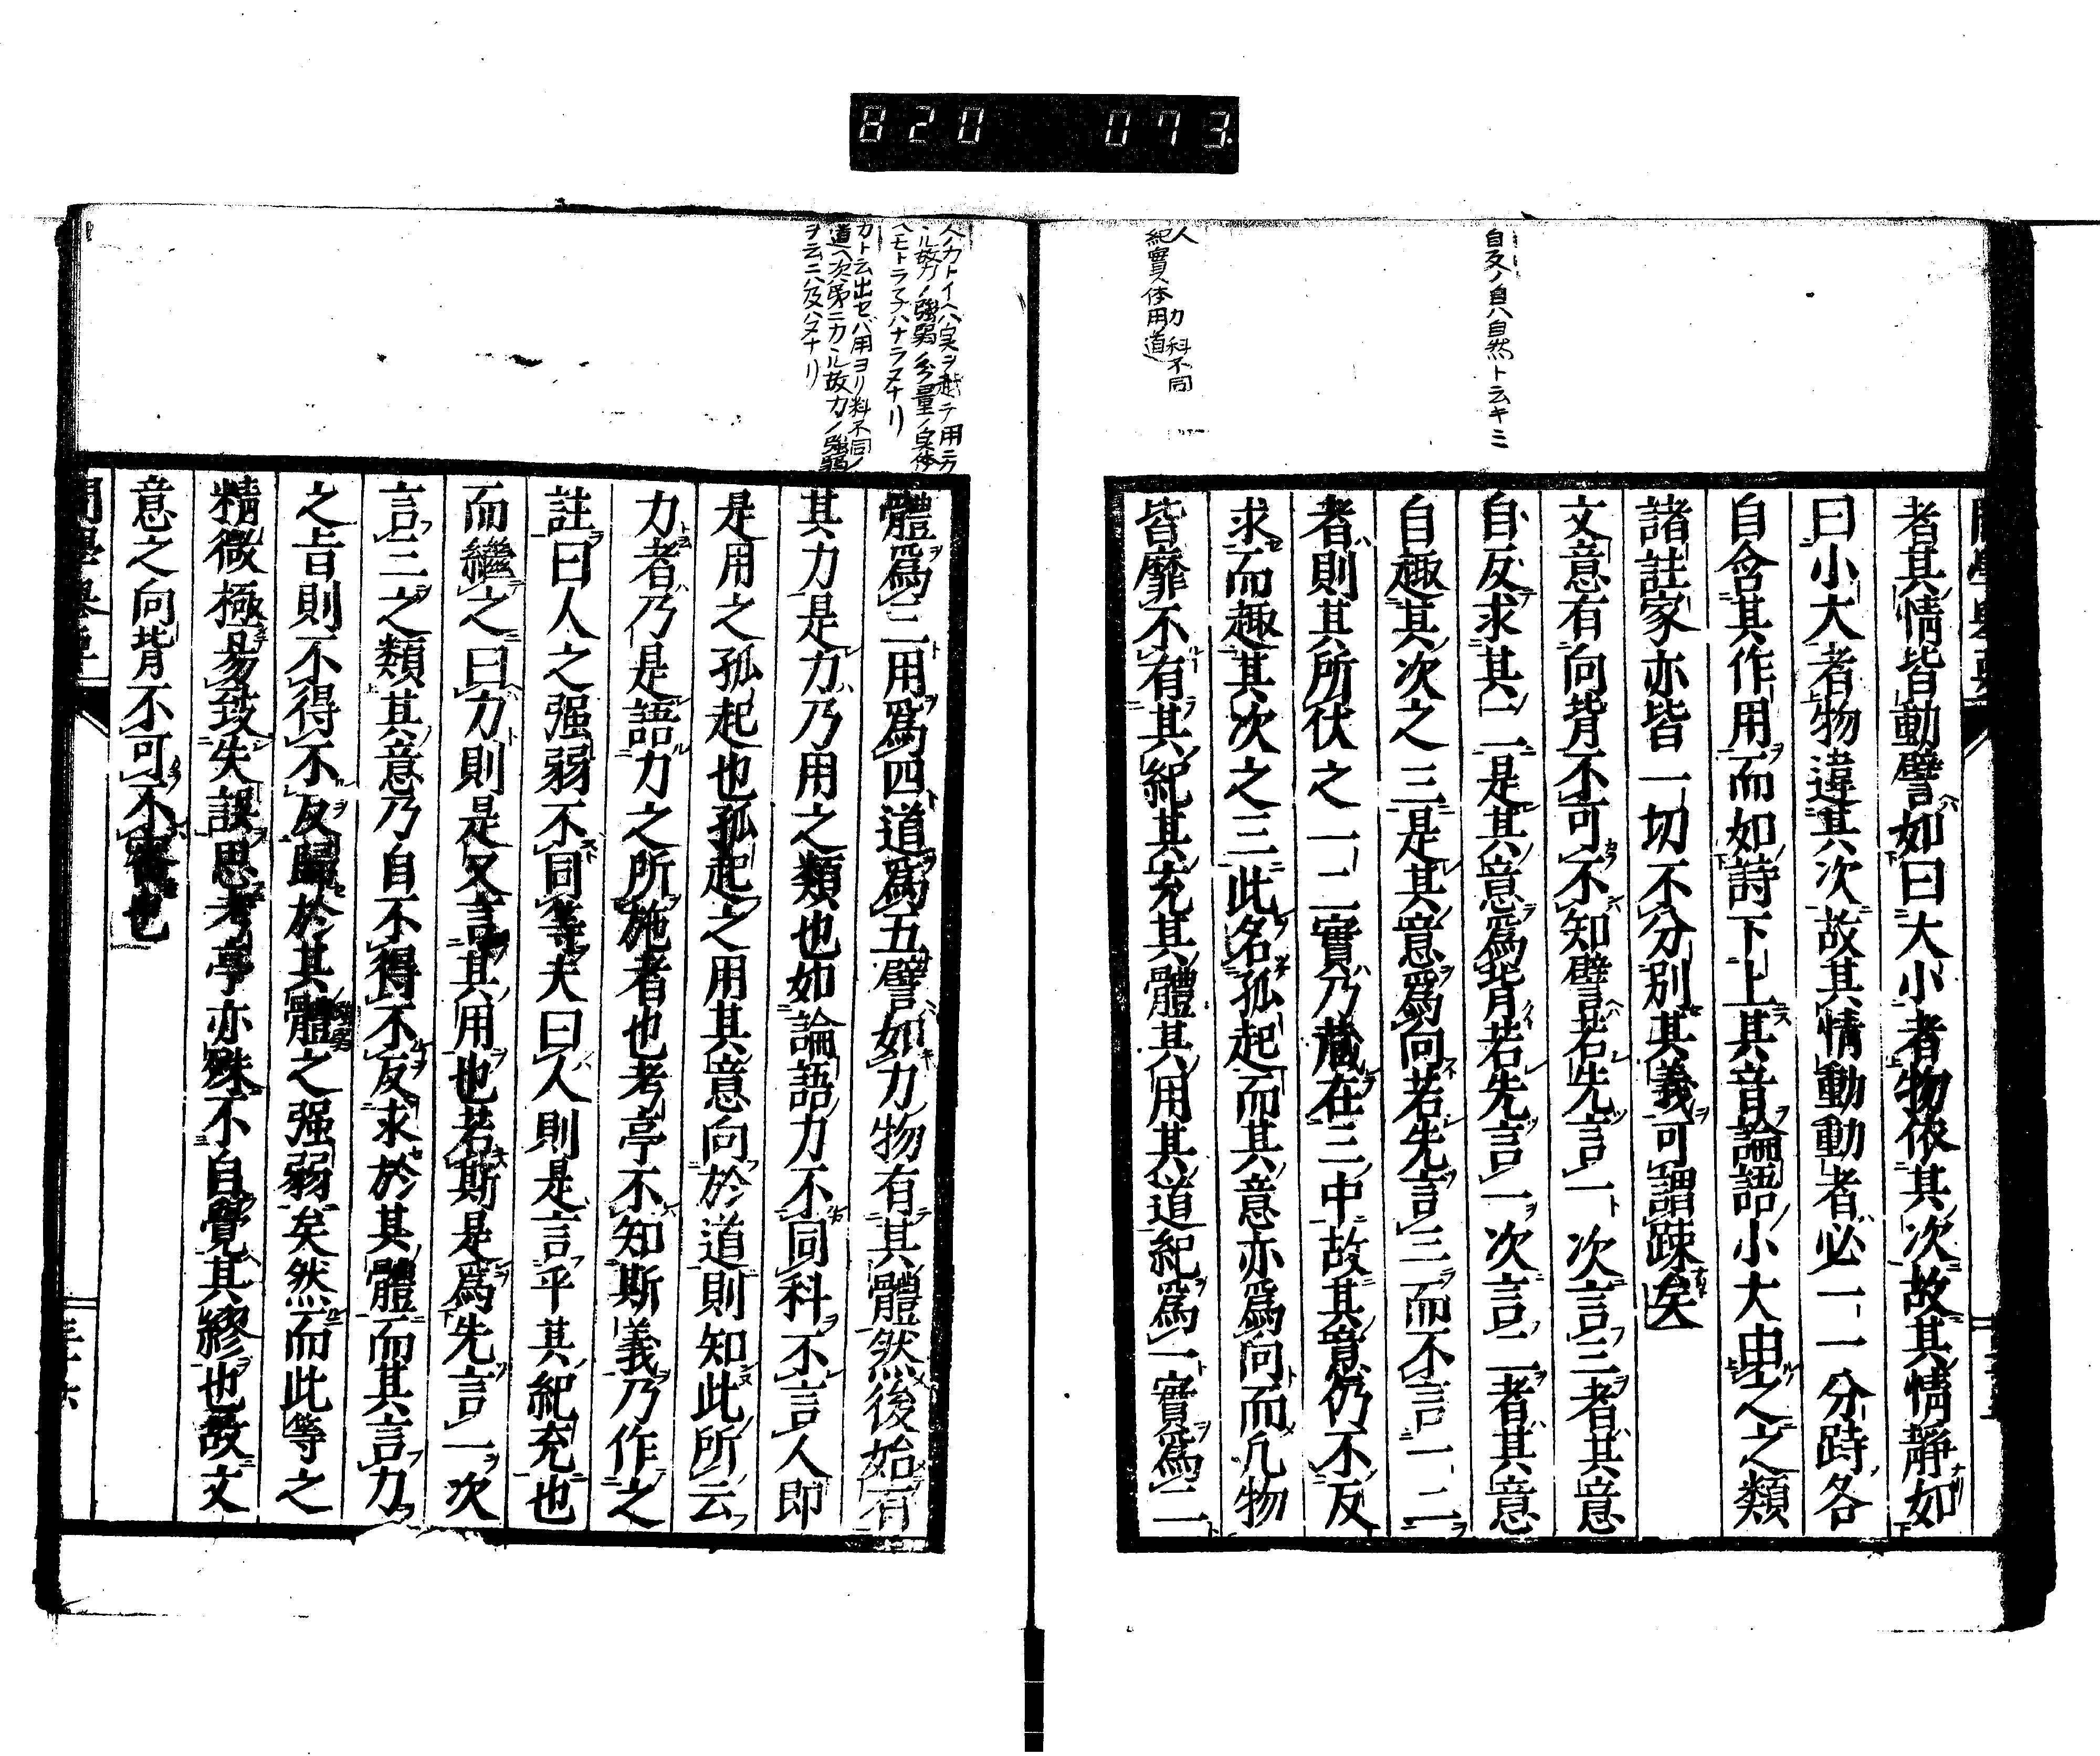 820 073
自反ノ自ハ自然ト云キミ
人 力科不同
紀實体用道
者其情皆動譬如曰大小者物依其次故其情靜如
曰小大者物違其次故其情動動者必一一分跱各
自含其作用而如詩下上其音論語小大由之之類
諸註家亦皆一切不分別其義可謂疎矣
文意有向背不可不知譬若先言一次言三者其意
自反求其二是其意爲背若先言一次言二者其意
自趣其次之三是其意爲向若先言三而不言一二
者則其所伏之一二實乃藏在三中故其意仍不反
求而趣其次之三此名孤起而其意亦爲向而凡物
皆靡不有其紀其充其體其用其道紀爲一實爲二
人ノ力トイヘハ実ヲ越テ用ニカ
ル故力ノ強弱分量ノ実体
ヘモトラ子ハナラヌナリ
力ト云出セバ用ヨリ科不同ノ
道ヘ次第ニカヽル故力ノ強弱
ヲ云ニハ及ハヌナリ
體爲三用爲四道爲五譬如力物有其體然後始有
其力是力乃用之類也如論語力不同科不言人即
是用之孤起也孤起之用其意向於道則知此所云
力者乃是語力之所施者也考亭不知斯義乃作之
註曰人之强弱不同等夫曰人則是言乎其紀充也
而繼之曰力則是又言其用也若斯是爲先言一次
言三之類其意乃自不得不反求於其體而其言力
之旨則不得不反歸於其體之强弱矣然而此等之
精微極易致失誤思考亭亦殊不自覺其繆也故文
意之向背不可不審也